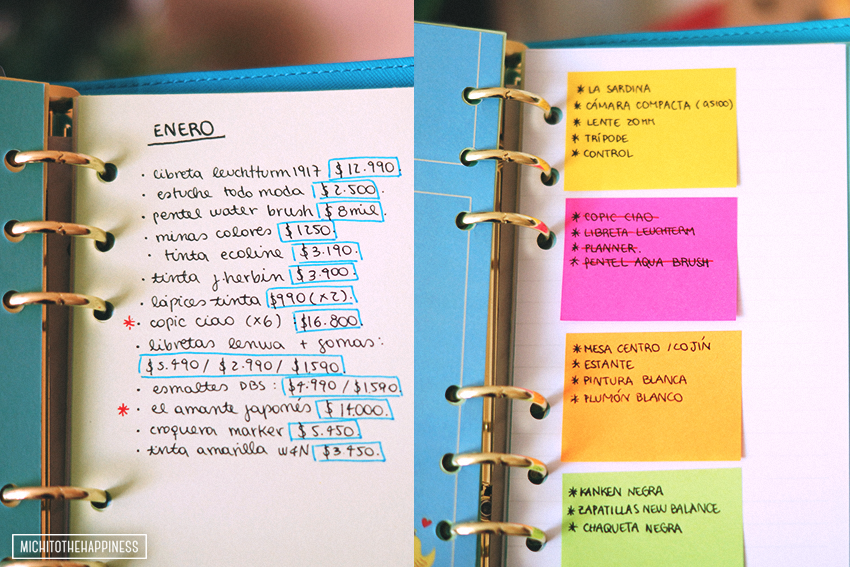 ENERO
· libreta leuchtturm1917 $12.990
· estuche todo moda $2.500.
· pentel water brush $8mil
· minas colores $1250.
· tinta ecoline $3.190.
· tinta j.herbin $3.900.
· lápices tinta $990 (x2).
* · copic ciao (x6) $16.800
· libretas lenwa + gomas:
$5.490/ $2.990/ $1590
· esmaltes DBS: $4.990 / $1590
* · el amante japonés $14.000.
· croquera marker $5.450.
· tinta amarilla W&N $3.450.
MICHITOTHEHAPPINESS
* LA SARDINA
* CÁMARA COMPACTA (a5100)
* LENTE 20MM
* TRÍPODE
* CONTROL
* COPIC CIAO
* LIBRETA LEUCHTERM
* PLANNER.
* PENTEL AQUA BRUSH
* MESA CENTRO / COJÍN
* ESTANTE
* PINTURA BLANCA
* PLUMÓN BLANCO
* KANKEN NEGRA
* ZAPATILLAS NEW BALANCE
* CHAQUETA NEGRA